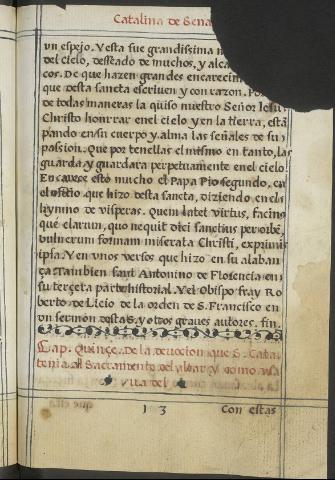 Catalina de Sena
vn espejo. Y esta fue grandissima
del cielo, desseado de muchos, y alca
cos. De que hazen grandes encarecim
que desta sancta escriuen y con razon.
de todas maneras la quiso nuestro Señor Iesu
Christo honrrar en el cielo y en la tierra, está
pando en su cuerpo y alma las señales de su
passion. Que por tenellas el mismo en tanto, las
guarda y guardara perpetuamente en el cielo
Encarece esto mucho el Papa Pio segundo, en
el officio que hizo desta sancta, diziendo en el
hymno de visperas. Quem latet virtus, facinus
que clarum, quo nequit dici sanctius per orbē,
vulnerum formam miserata Christi, exprimis
ipsa. Y en vnos versos que hizo en su alaban
ça tambien sant Antonino de Florencia en
su terçera parte historial. Y el Obispo fray Ro
berto de Licio de la orden de S. Francisco en
vn sermón desta S. y otros graues autores. fin.
Cap. Quinçe. de la deuocion que S. Cata
lina al Sacramento del altar y como
13
Con estas